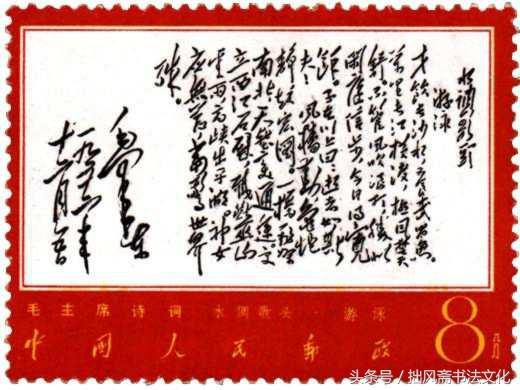 水调歌头
游泳
才饮长沙水，又食武昌鱼。
万里长江横渡，极目楚天
舒。不管风吹浪打，胜似
闲庭信步，今日得宽
馀。子在川上曰：逝者如斯
夫！风樯动，龟蛇
静，起宏图。一桥飞架
南北，天堑变通途。更
立西江石壁，截断巫山
云雨，高峡出平湖。神女
应无恙，当惊世界
殊。
毛泽东
一九五六年
十二月五日
毛主席诗词 水调歌头·游泳
中國人民郵政 8分
头条号 / 拙风斋书法文化